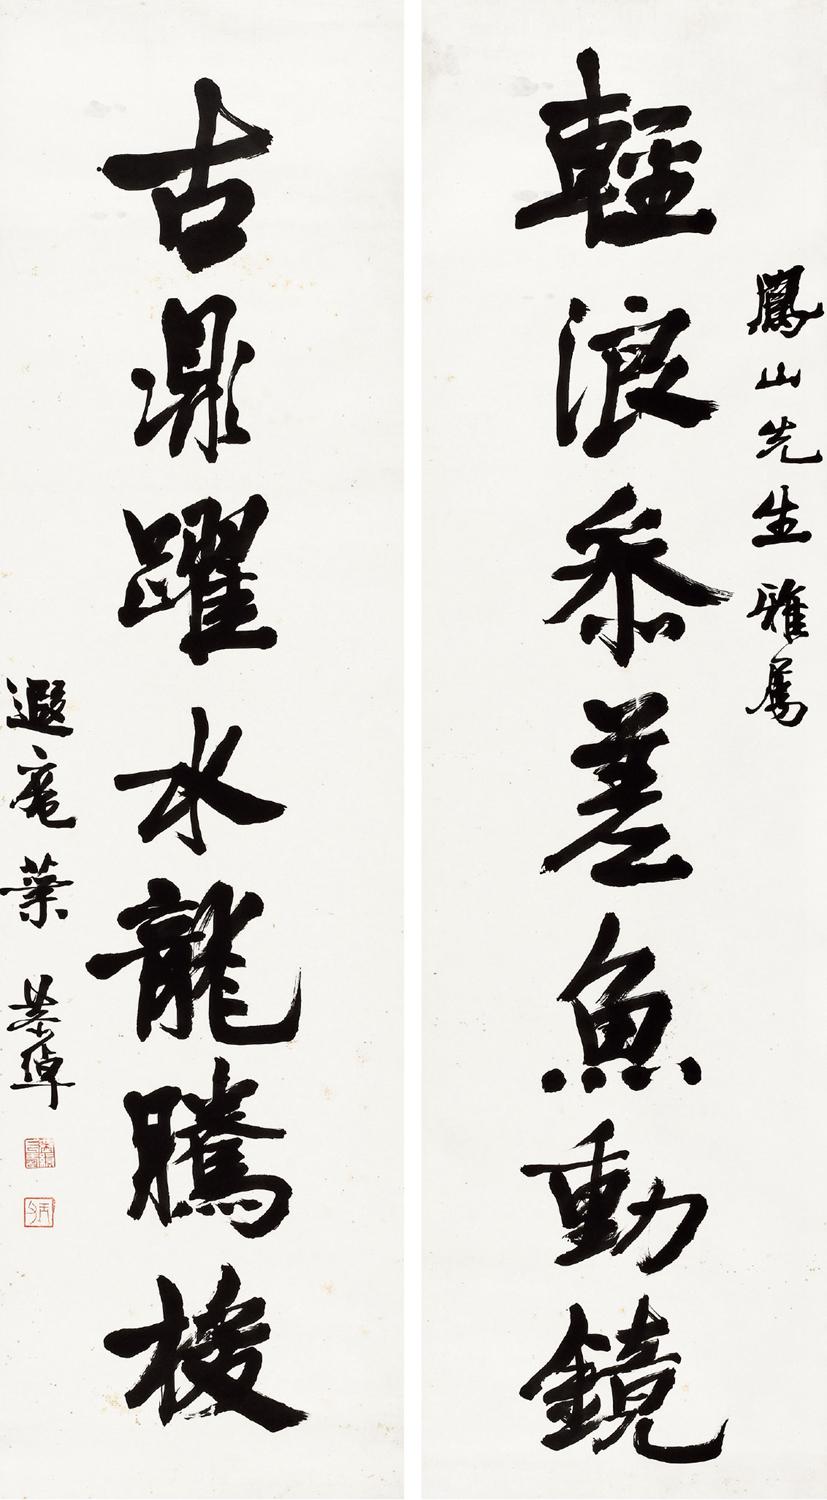 鳳山先生雅屬
輕浪叅差魚動鏡
古鼎躍水龍騰梭
遐庵葉恭綽